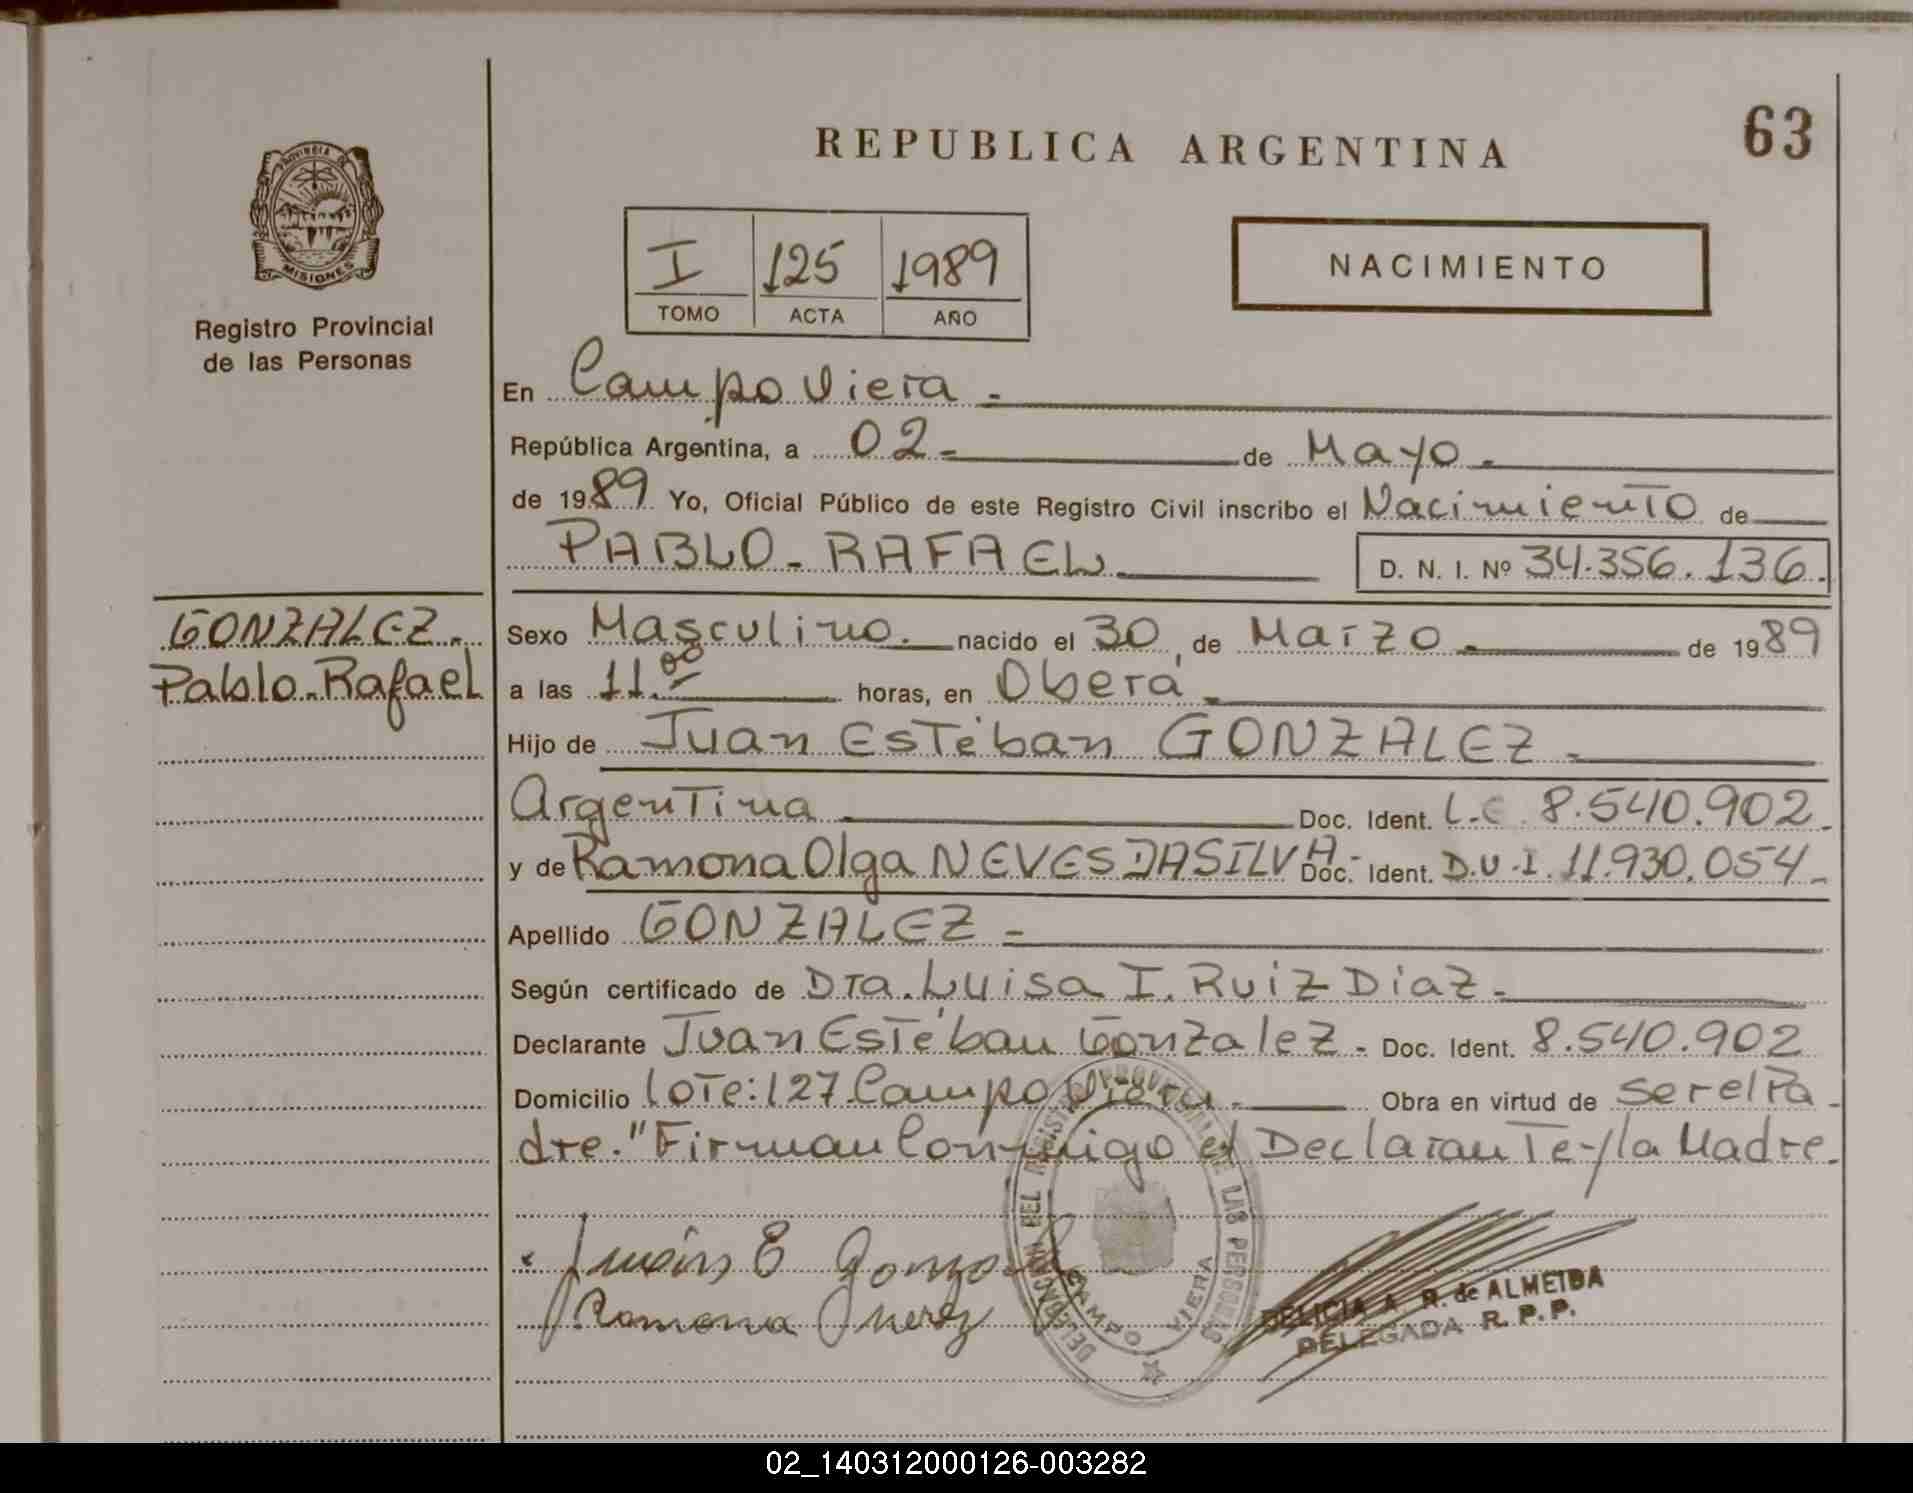 REPUBLICA ARGENTINA
63
PROVINCIA DE
MISIONES
Registro Provincial
de las Personas
I 125 1989
TOMO ACTA AÑO
NACIMIENTO
En Campo Viera.-
República Argentina, a 02.- de Mayo.-
de 1989 Yo, Oficial Público de este Registro Civil inscribo el Nacimiento de
PABLO-RAFAEL.
D. N. I. Nº 34.356.136.
GONZALEZ.
Pablo-Rafael
Sexo Masculino. nacido el 30 de Marzo.- de 1989
a las 11.00 horas, en Oberá.-
Hijo de Juan Estéban GONZALEZ.-
Argentina Doc. Ident. L.E. 8.540.902.
y de Ramona Olga NEVES DA SILVA.- Doc. Ident. D.U.I. 11.930.054.-
Apellido GONZALEZ.-
Según certificado de Dra. Luisa I. Ruiz Diaz.-
Declarante Juan Estéban Gonzalez.- Doc. Ident. 8.540.902
Domicilio lote: 127 Campo Viera.- Obra en virtud de ser el Pa-
dre." Firman Conmigo el Declarante y la Madre.
Juan E Gonzo
Ramona
DELEGACION DEL REGISTRO PROVINCIAL DE LAS PERSONAS
CAMPO VIERA
DELICIA A. R. de ALMEIDA
DELEGADA R. P. P.
02_140312000126-003282